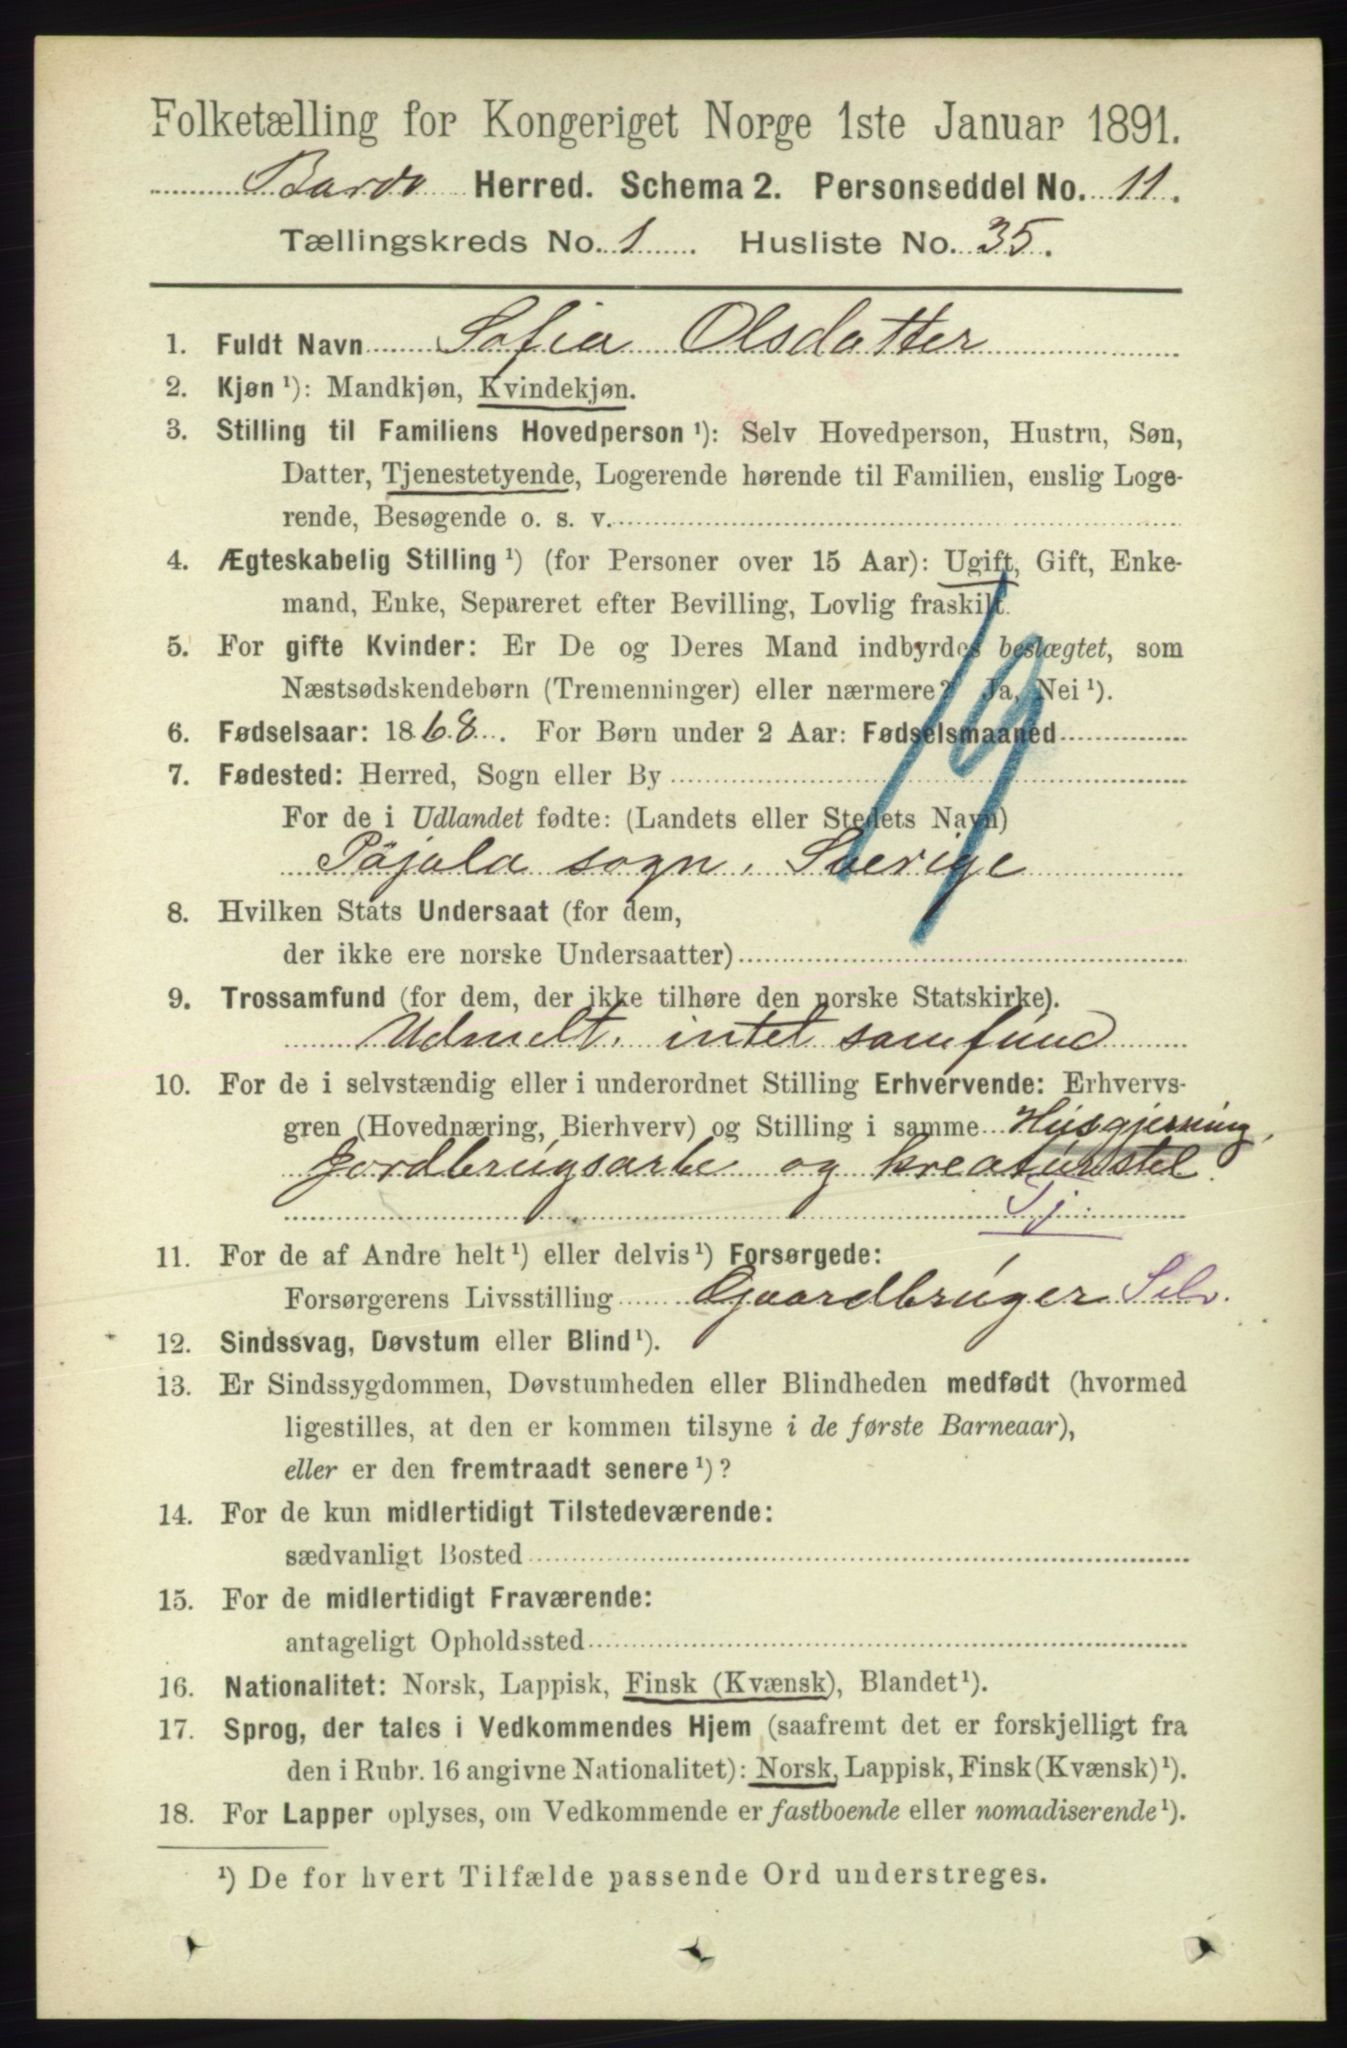 Folketælling for Kongeriget Norge 1ste Januar 1891.
Bardo Herred. Schema 2. Personseddel No. 11.
Tællingskreds No. 1 Husliste No. 35.
1. Fuldt Navn Sofia Olsdatter
2. Kjøn ¹): Mandkjøn, Kvindekjøn.
3. Stilling til Familiens Hovedperson ¹): Selv Hovedperson, Hustru, Søn,
Datter, Tjenestetyende, Logerende hørende til Familien, enslig Loge-
rende, Besøgende o. s. v.
4. Ægteskabelig Stilling ¹) (for Personer over 15 Aar): Ugift, Gift, Enke-
mand, Enke, Separeret efter Bevilling, Lovlig fraskilt.
5. For gifte Kvinder: Er De og Deres Mand indbyrdes beslægtet, som
Næstsødskendebørn (Tremenninger) eller nærmere? Ja, Nei ¹).
19
6. Fødselsaar: 1868. For Børn under 2 Aar: Fødselsmaaned
7. Fødested: Herred, Sogn eller By
For de i Udlandet fødte: (Landets eller Stedets Navn)
Påjala sogn, Sverige
8. Hvilken Stats Undersaat (for dem,
der ikke ere norske Undersaatter)
9. Trossamfund (for dem, der ikke tilhøre den norske Statskirke).
Udmeldt, intet samfund
10. For de i selvstændig eller i underordnet Stilling Erhvervende: Erhvervs-
gren (Hovednæring, Bierhverv) og Stilling i samme Husgjerning,
Jordbrugsarb. og kreaturstel.
Tj.
11. For de af Andre helt ¹) eller delvis ¹) Forsørgede:
Forsørgerens Livsstilling Gaardbruger Selv.
12. Sindssvag, Døvstum eller Blind ¹).
13. Er Sindssygdommen, Døvstumheden eller Blindheden medfødt (hvormed
ligestilles, at den er kommen tilsyne i de første Barneaar),
eller er den fremtraadt senere ¹)?
14. For de kun midlertidigt Tilstedeværende:
sædvanligt Bosted
15. For de midlertidigt Fraværende:
antageligt Opholdssted
16. Nationalitet: Norsk, Lappisk, Finsk (Kvænsk), Blandet ¹).
17. Sprog, der tales i Vedkommendes Hjem (saafremt det er forskjelligt fra
den i Rubr. 16 angivne Nationalitet): Norsk, Lappisk, Finsk (Kvænsk) ¹).
18. For Lapper oplyses, om Vedkommende er fastboende eller nomadiserende ¹).
¹) De for hvert Tilfælde passende Ord understreges.